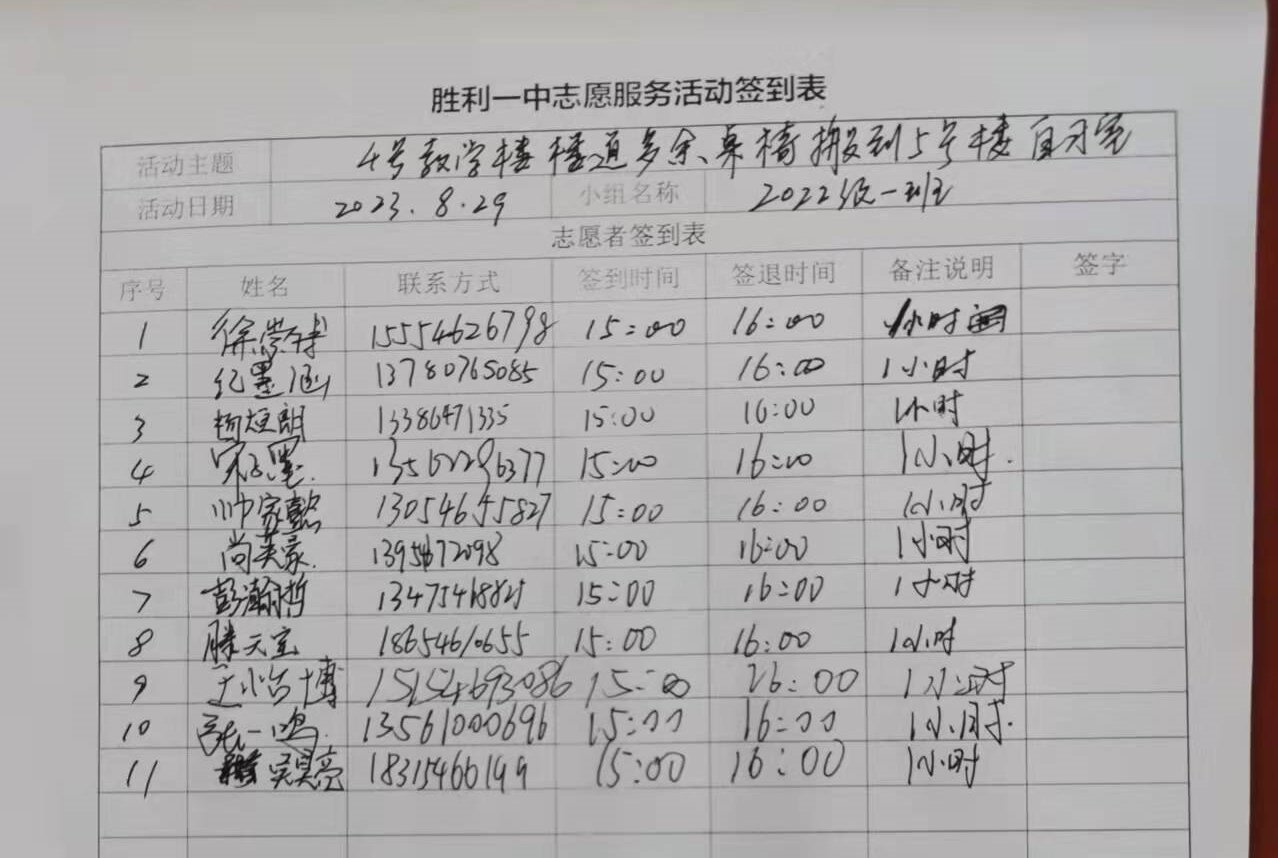 胜利一中志愿服务活动签到表
活动主题 4号教学楼楼道多余桌椅搬到5号楼自习室
活动日期 2023.8.29 小组名称 2022级一班
志愿者签到表
序号 姓名 联系方式 签到时间 签退时间 备注说明 签字
1 徐崇博 15554626798 15:00 16:00 1小时
2 纪墨涵 13780765085 15:00 16:00 1小时
3 杨烜朗 13386471335 15:00 16:00 1小时
4 15:00 16:00 1小时.
5 帅家懿 13054655827 15:00 16:00 1小时
6 尚英豪. 15:00 16:00 1小时
7 彭瀚哲 15:00 16:00 1小时
8 滕天宝 18654610655 15:00 16:00 1小时
9 15154693086 15:00 16:00 1小时
10 张一鸣. 13561000696 15:00 16:00 1小时.
11 吴昊亮 18315466199 15:00 16:00 1小时